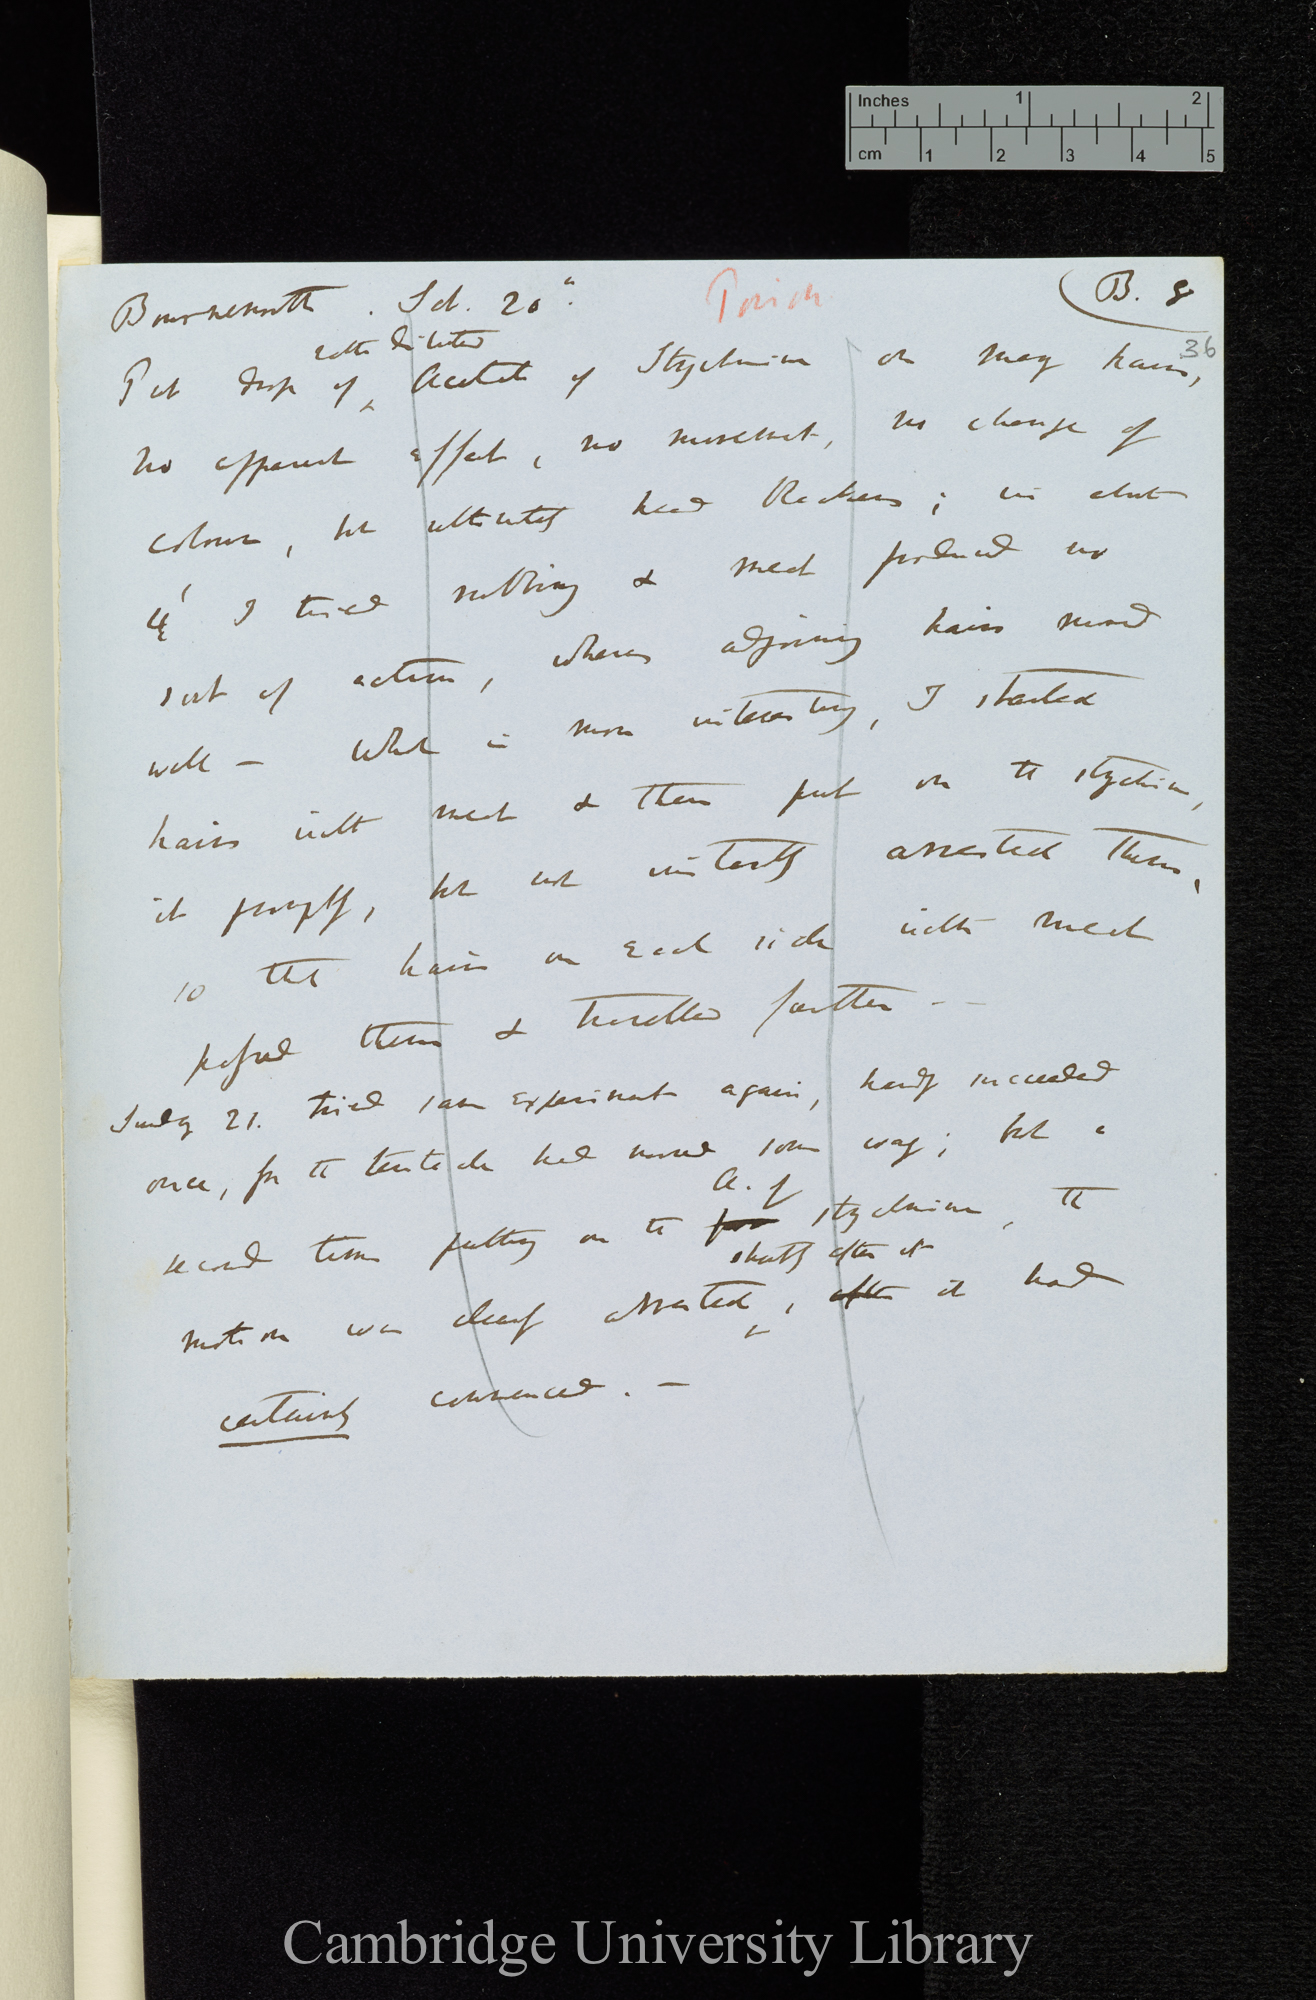 Inches 1 2
cm 1 2 3 4 5
Bournemouth. Sat. 20th.
Poison
B. 8
36
rather diluted
Put drop of Acetate of Strychnine on many hairs,
no apparent effect, no movement, no change of
colour, but ultimately head blackens; in about
I tried rubbing & meat produced no
sort of action, whereas adjoining hairs moved
well — What is more interesting, I started
hairs with meat & then put on the strychnine,
it promptly, but not instantly arrested them,
so that hairs on each side with meat
passed them & travelled further —
Sunday 21. tried same experiment again, hardly succeeded
once, for the tentacle had moved some way; but a
A. of
second time putting on the strychnine, the
shortly after it
motion was clearly arrested, after it had
certainly commenced. —
Cambridge University Library